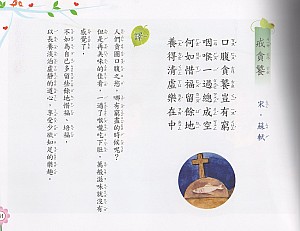 戒貪饕
宋・蘇軾
口腹貪饕豈有窮
咽喉一過總成空
何如惜福留餘地
養得清虛樂在中
譯
人們貪圖口腹之慾，哪有窮盡的時候呢？
但是再美味的佳餚，一過了喉嚨吃下肚，萬般滋味就沒有
感覺了。
不如為自己多留些餘地惜福、培福，
以長養淡泊虛靜的道心，享受少欲知足的樂趣。